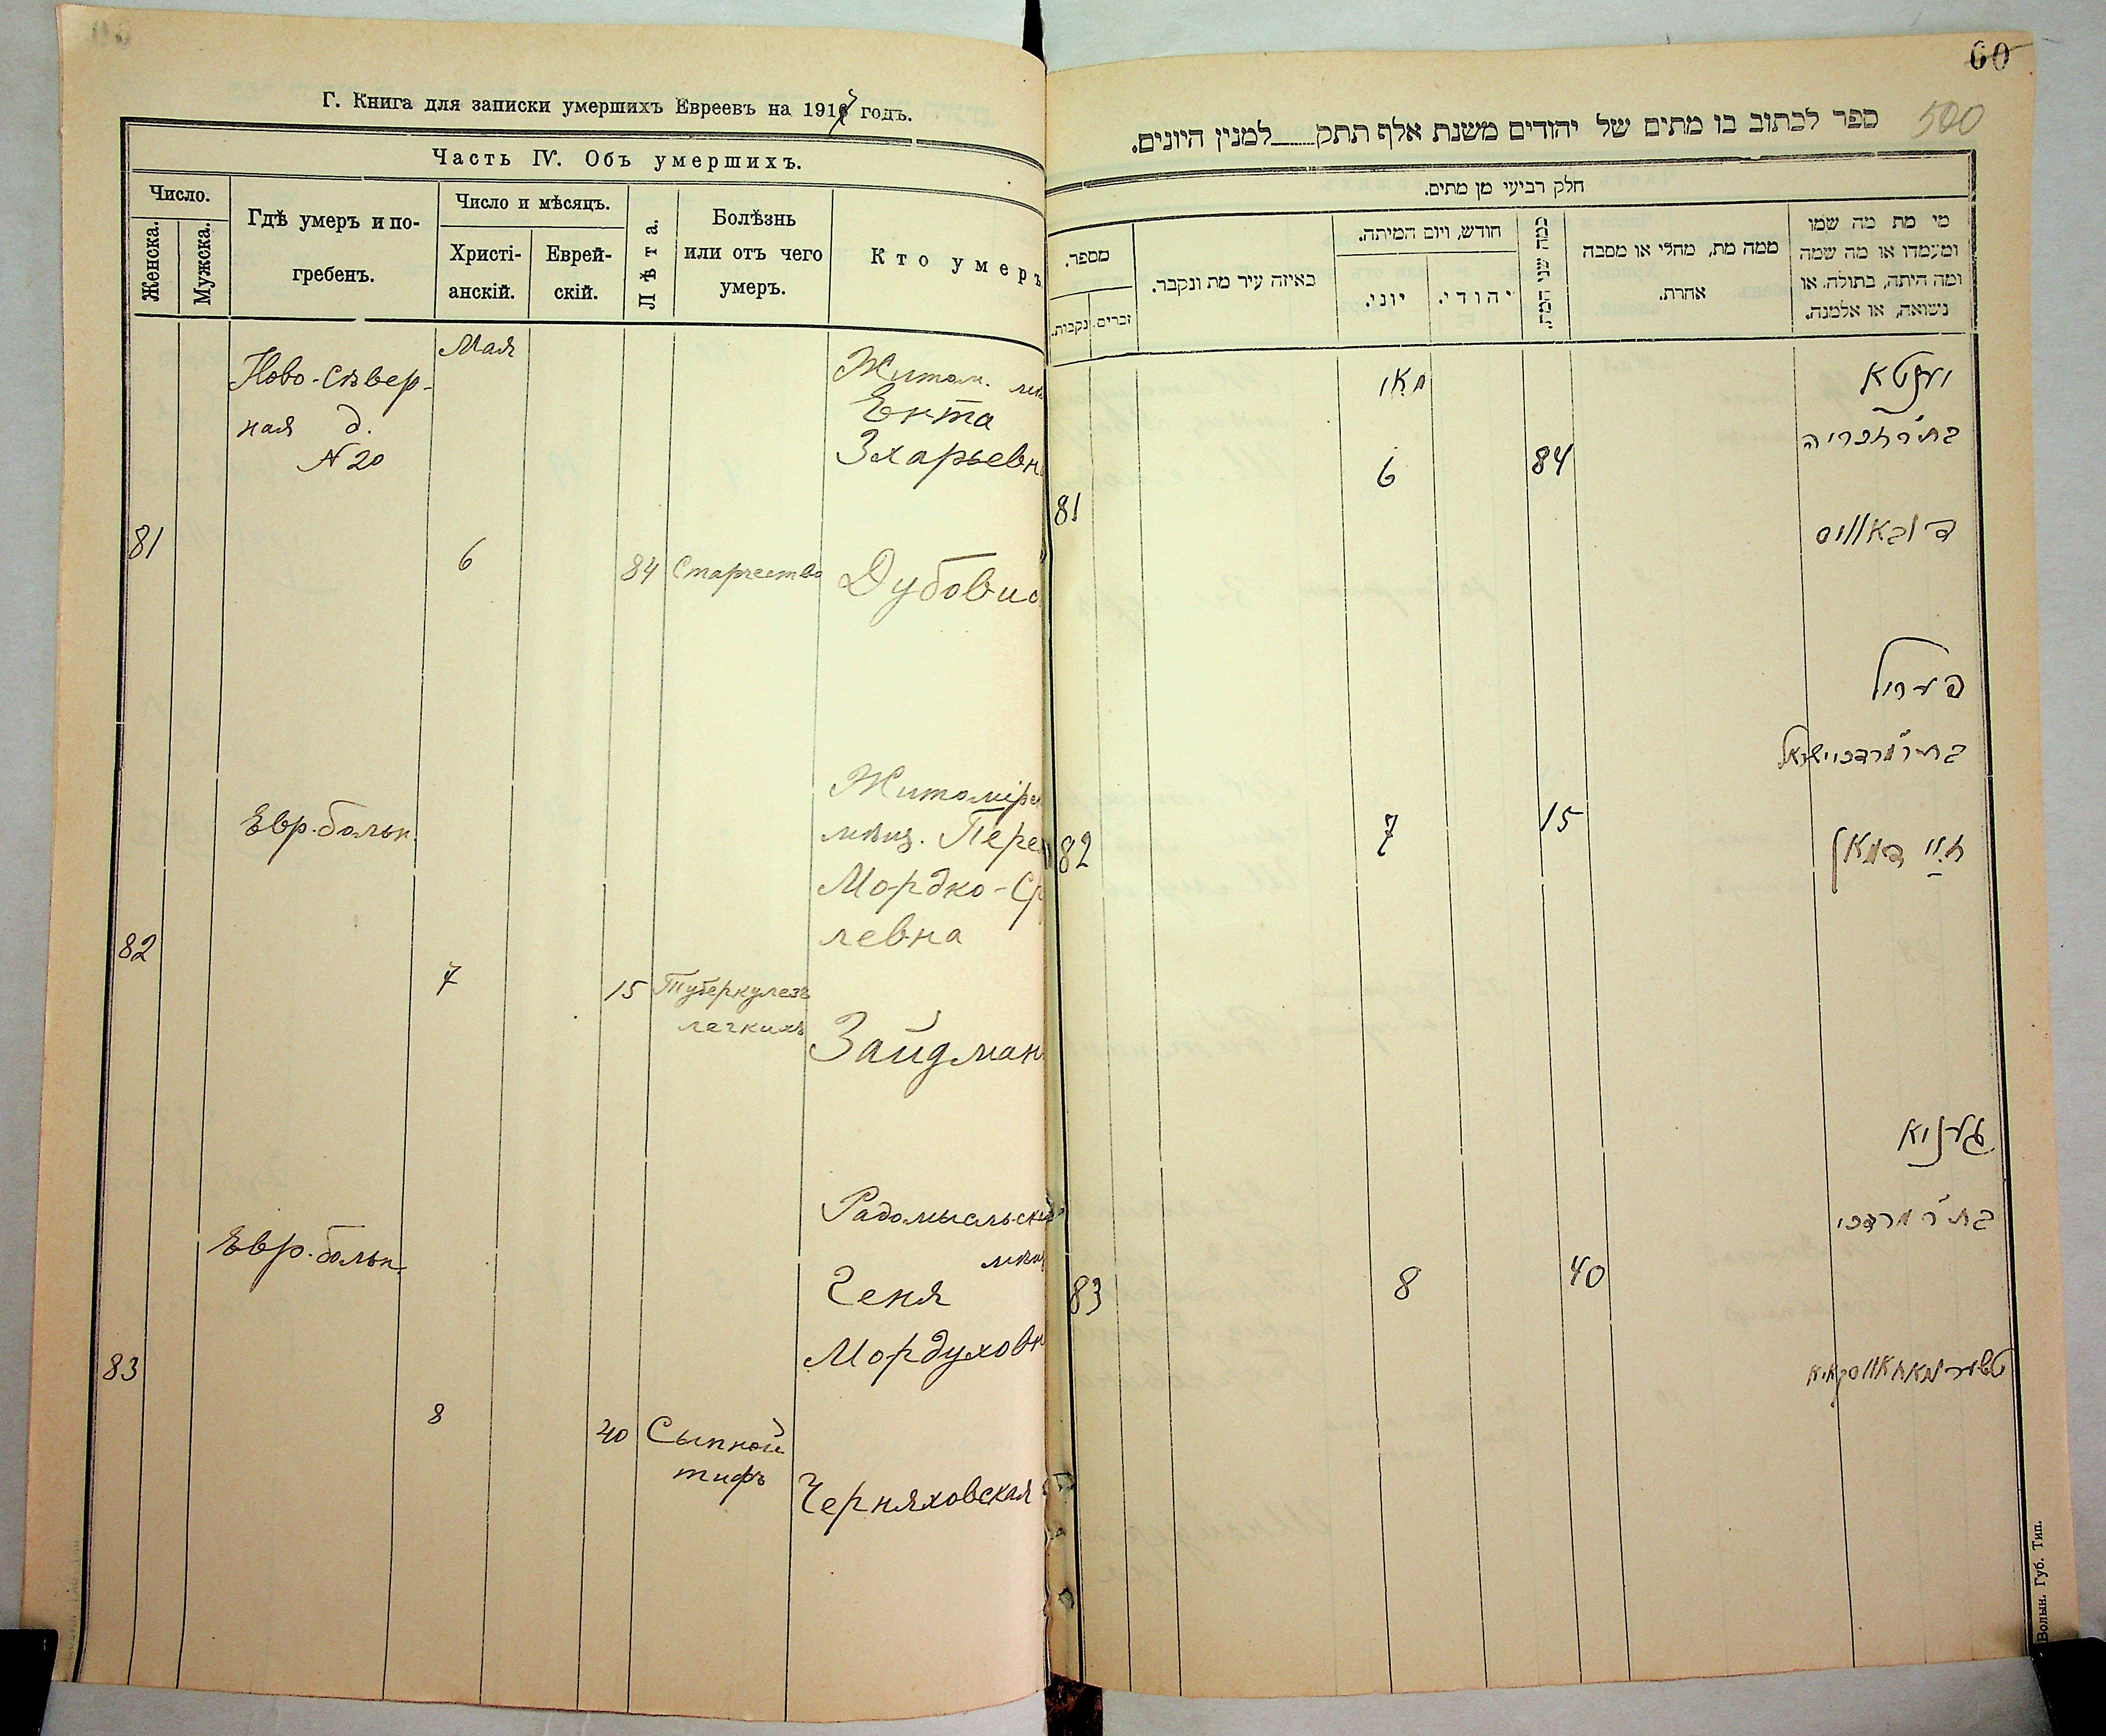 Г. Книга для записки умершихъ Евреевъ на 1917 годъ.
Часть IV. Объ умершихъ.
Число.
Женска.
Мужска.
Гдѣ умеръ и по-
гребенъ.
Число и мѣсяцъ.
Христі-
анскій.
Еврей-
скій.
Лѣта.
Болѣзнь
или отъ чего
умеръ.
Кто умеръ
Мая
Ново-Сѣвер-
ная д.
N 20
Житом.
Ента
Зхарьевн
81
6
84
Старчество
Дубовис
Евр. больн.
Житомірс
мѣщ. Пере
Мордко-Ср
левна
82
7
15
Туберкулезъ
легкихъ
Зайдман
Евр. больн.
Радомысльск
Геня
Мордуховн
83
8
40
Сыпной
тифъ
Черняховская
60
500
ספר לכתוב בו מתים של יהודים משנת אלף תתק למנין היונים.
חלק רביעי מן מתים.
מי מת מה שמו
ומעמדו או מה שמה
ומה היתה, בתולה, או
נשואה, או אלמנה.
ממה מת, מחלי או מסבה
אחרת.
כמה שני המת
חודש, ויום המיתה.
יהודי.
יוני.
באיזה עיר מת ונקבר.
מספר.
זכרים.
נקבות.
יענטא
בת ר' זכריה
מאי
6
84
81
דובאוויס
פעריל
בת ר' מרדכי ישראל
זיידמאן
7
15
82
געניא
בת ר' מרדכי
8
40
83
טשערניאחאווסקאיא
Волын. Губ. Тип.